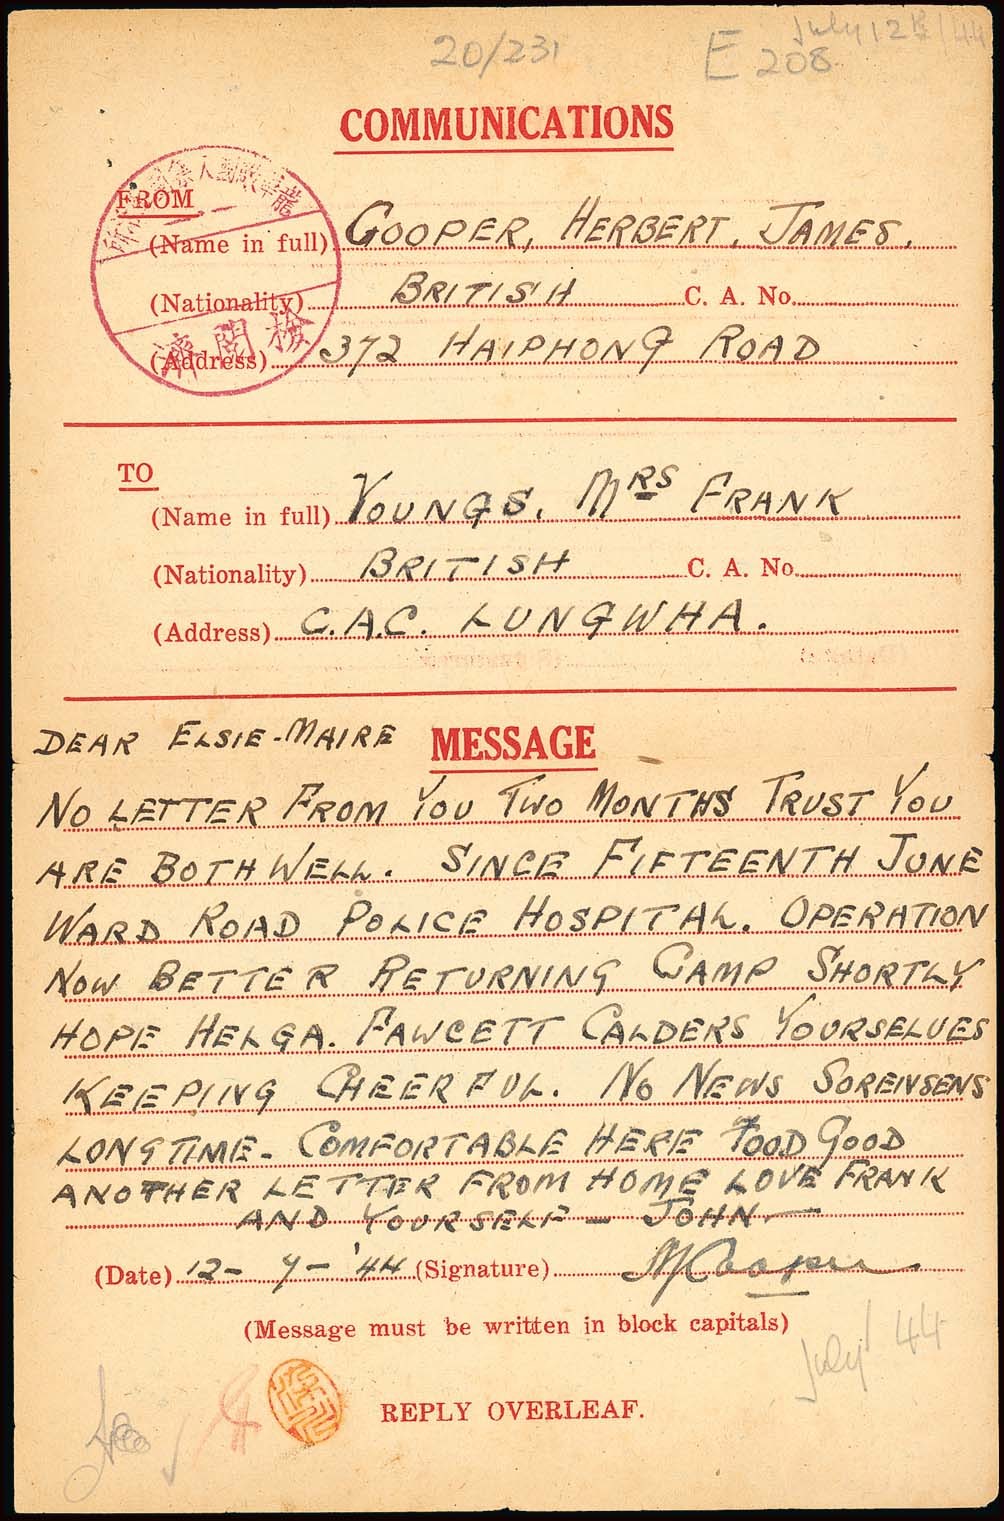 20/231
E 208
July 12th/44
COMMUNICATIONS
FROM
(Name in full) COOPER, HERBERT, JAMES.
(Nationality) BRITISH C. A. No.
(Address) 372 HAIPHONG ROAD
檢閱濟
TO
(Name in full) YOUNGS. MRS FRANK
(Nationality) BRITISH C. A. No.
(Address) C.A.C. LUNGWHA.
DEAR ELSIE-MAIRE
MESSAGE
NO LETTER FROM YOU TWO MONTHS TRUST YOU
ARE BOTH WELL. SINCE FIFTEENTH JUNE
WARD ROAD POLICE HOSPITAL. OPERATION
NOW BETTER RETURNING CAMP SHORTLY
HOPE HELGA. FAWCETT CALDERS YOURSELVES
KEEPING CHEERFUL. NO NEWS SORENSENS
LONGTIME - COMFORTABLE HERE FOOD GOOD
ANOTHER LETTER FROM HOME LOVE FRANK
AND YOURSELF - JOHN -
(Date) 12 - 7 - '44 (Signature) HJCooper
(Message must be written in block capitals)
July/44
REPLY OVERLEAF.